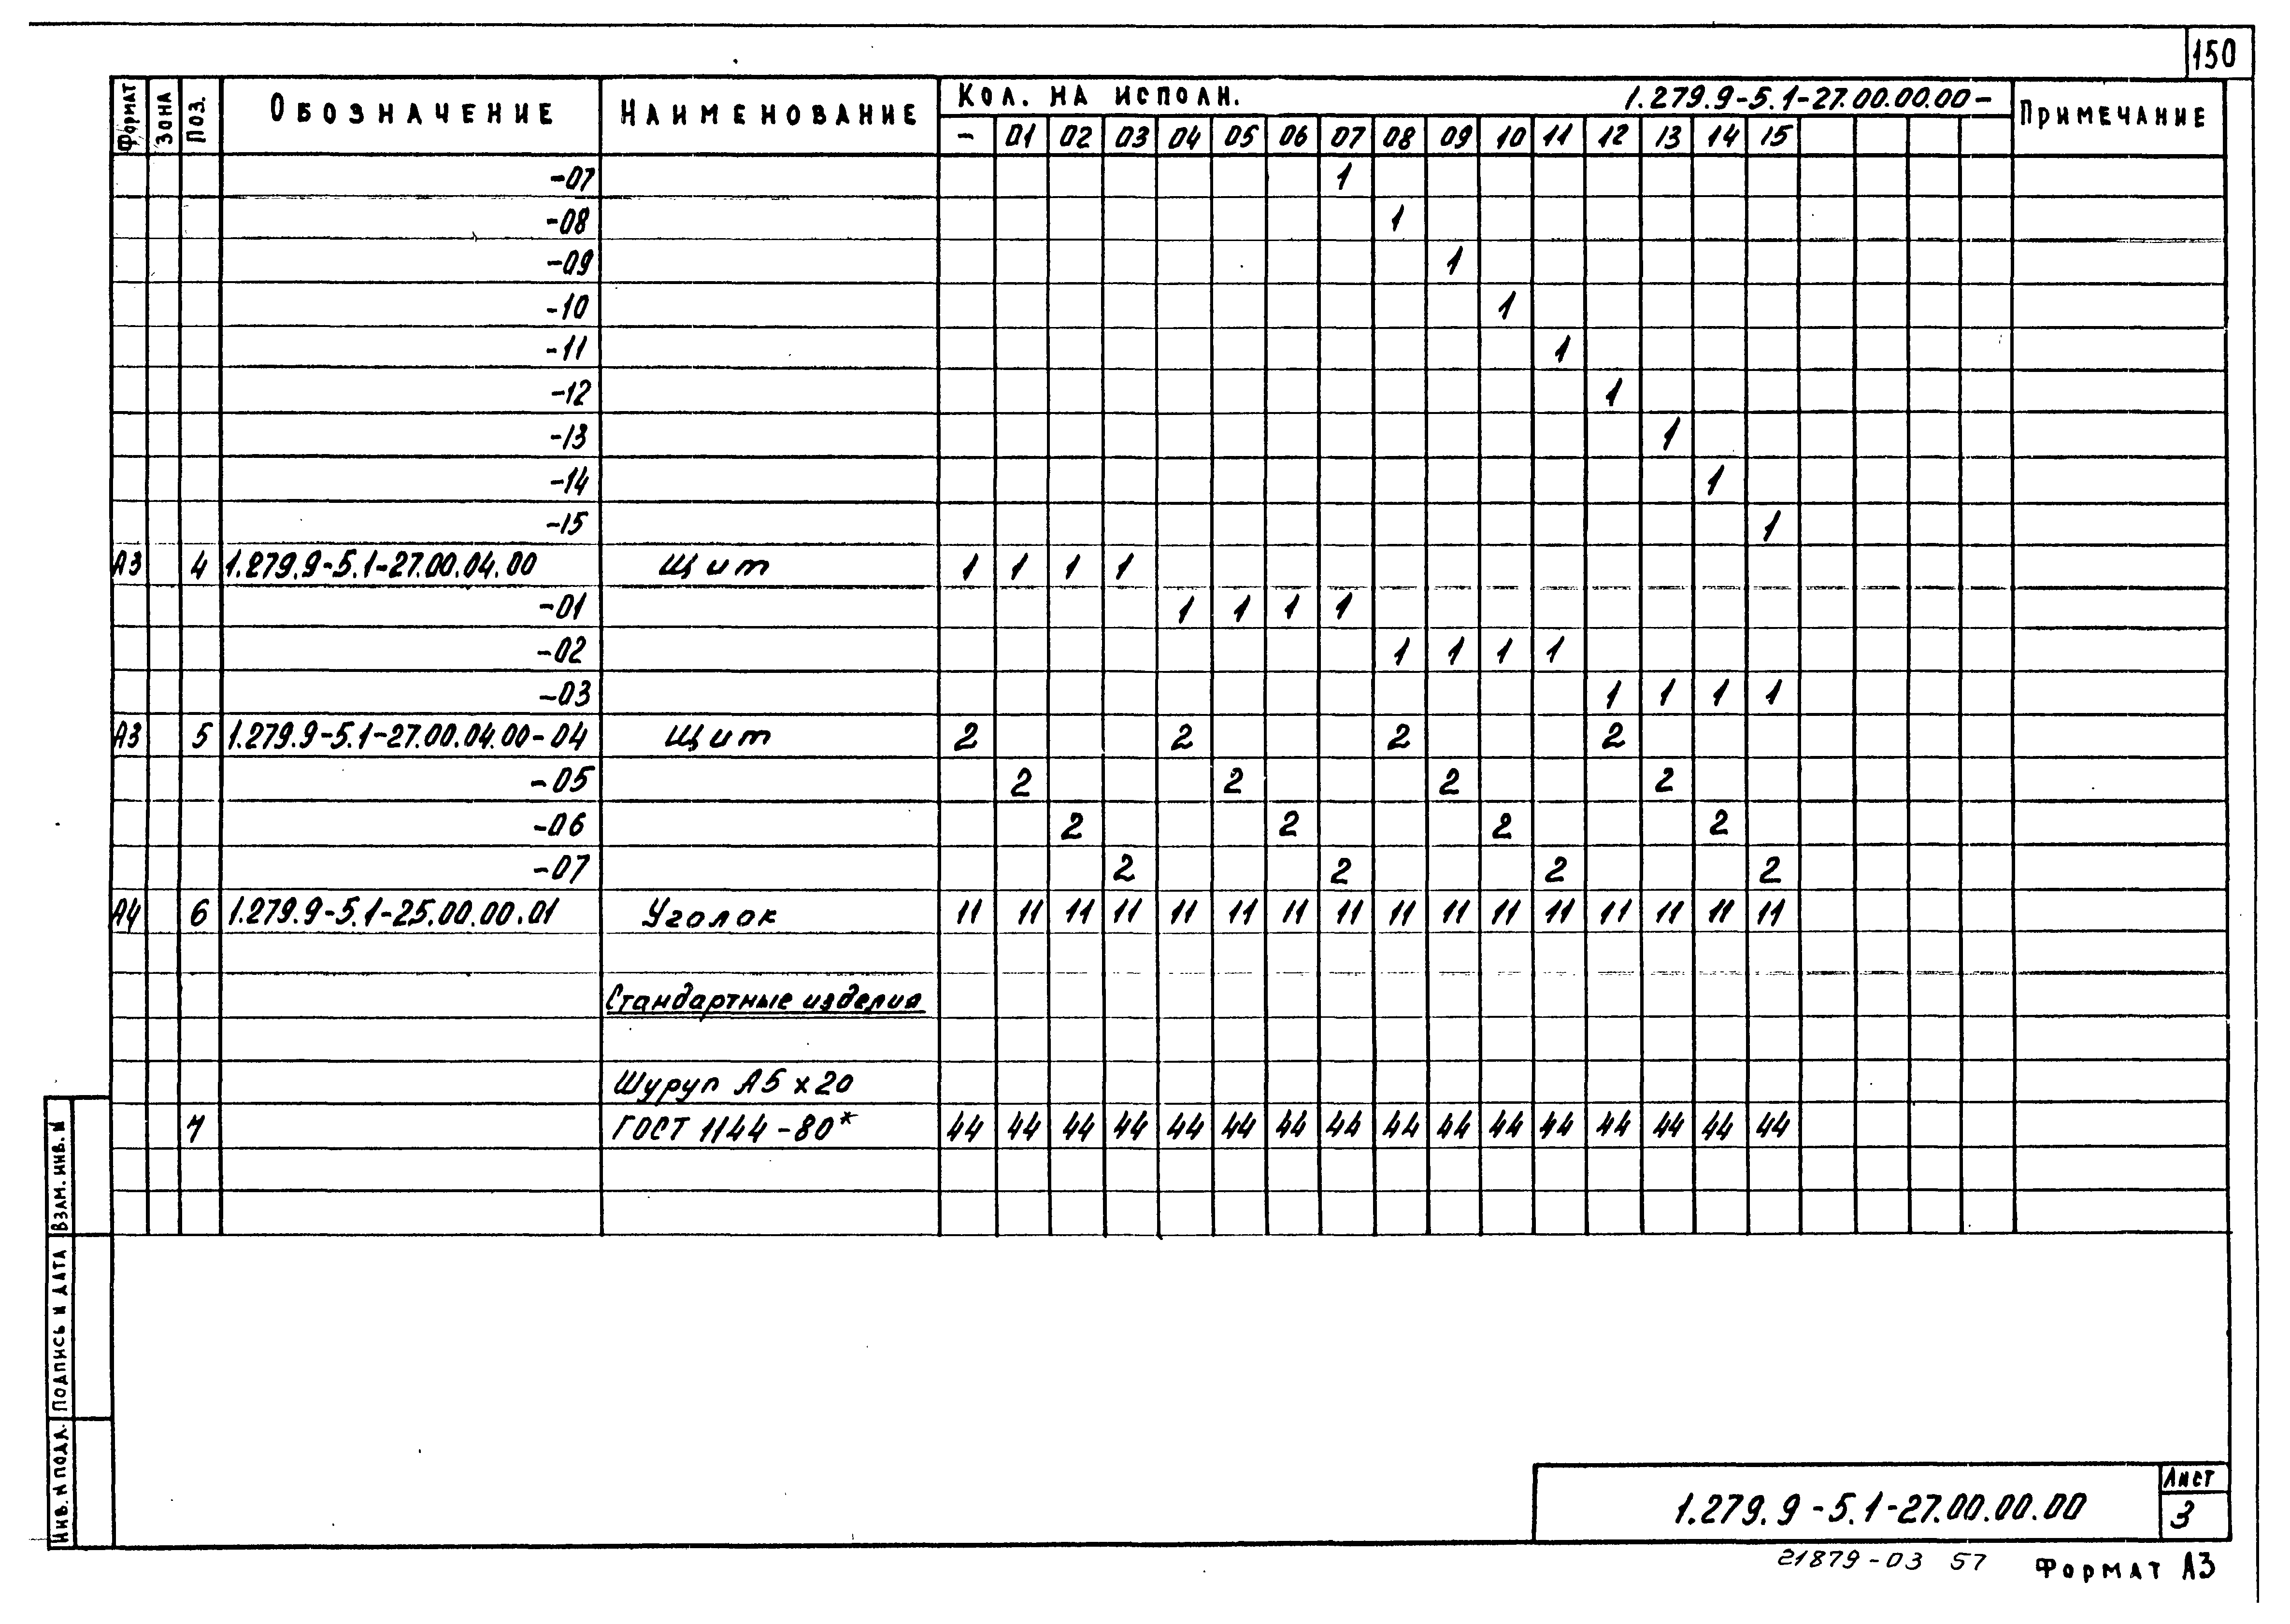 150
Формат Зона Поз. Обозначение Наименование Кол. на исполн. 1.279.9-5.1-27.00.00.00- Примечание
- 01 02 03 04 05 06 07 08 09 10 11 12 13 14 15
-07 1
-08 1
-09 1
-10 1
-11 1
-12 1
-13 1
-14 1
-15 1
А3 4 1.279.9-5.1-27.00.04.00 Щит 1 1 1 1
-01 1 1 1 1
-02 1 1 1 1
-03 1 1 1 1
А3 5 1.279.9-5.1-27.00.04.00-04 Щит 2 2 2 2
-05 2 2 2 2
-06 2 2 2 2
-07 2 2 2 2
А4 6 1.279.9-5.1-25.00.00.01 Уголок 11 11 11 11 11 11 11 11 11 11 11 11 11 11 11 11
Стандартные изделия
Шуруп А5х20
7 ГОСТ 1144-80* 44 44 44 44 44 44 44 44 44 44 44 44 44 44 44 44
Взам. инв. №
Подпись и дата
Инв. № подл.
1.279.9-5.1-27.00.00.00
Лист
3
21879-03 57
Формат А3